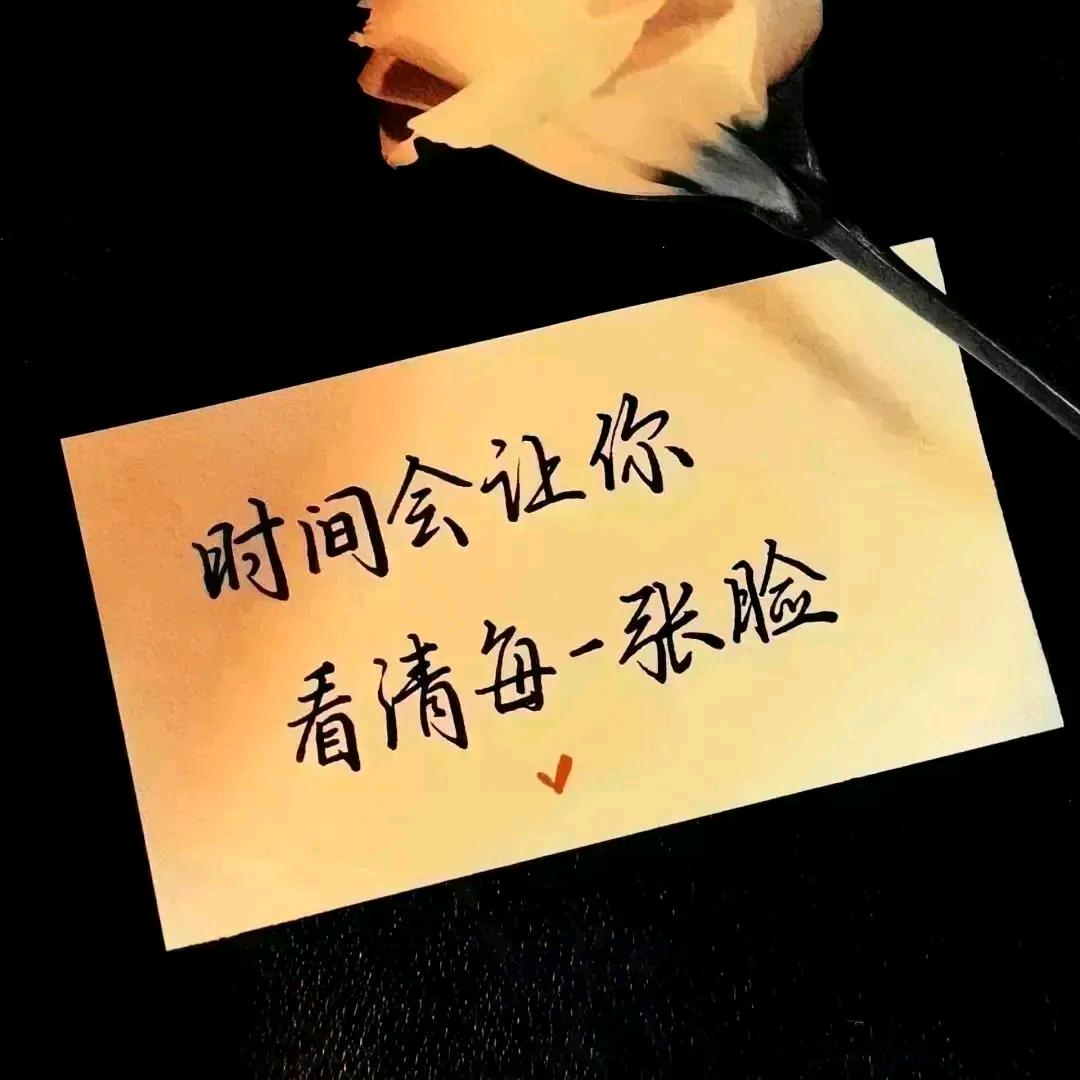 时间会让你
看清每一张脸